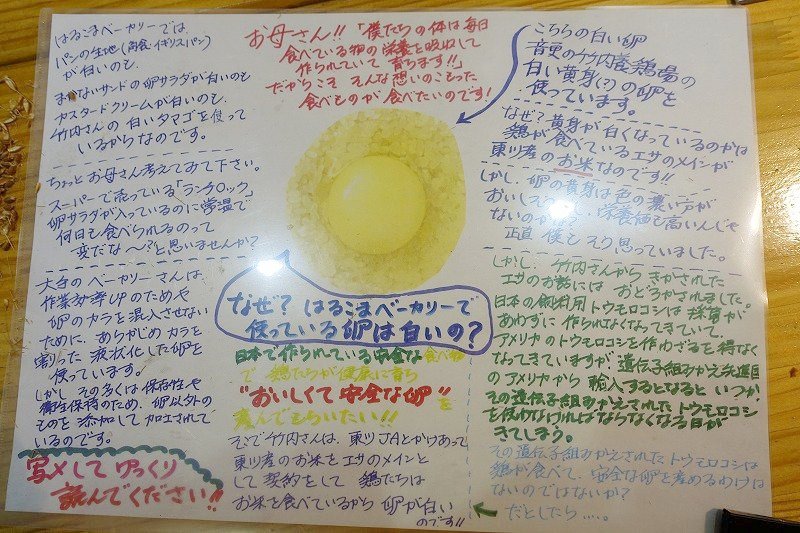 はるこまベーカリーでは、
パンの生地(角食・イギリスパン)
が白いのも、
まかないサンドの卵サラダが白いのも
カスタードクリームが白いのも、
竹内さんの白いタマゴを使って
いるからなのです。
ちょっとお母さん考えてみて下さい。
スーパーで売っている「ランチロック」
卵サラダが入っているのに常温で
何日も食べられるのって
変だな〜?と思いませんか?
大手のベーカリーさんは
作業効率UPのためや
卵のカラを混入させない
ために、あらかじめカラを
割った液状化した卵を
使っています。
しかしその多くは保存性や
衛生保持のため、卵以外の
ものを添加して加工されて
いるのです。
写メしてゆっくり
読んでください!!
お母さん!!「僕たちの体は毎日
食べている物の栄養を吸収して
作られていて育ちます!!」
だからこそそんな想いのこもった
食べものが食べたいのです!
なぜ?はるこまベーカリーで
使っている卵は白いの?
日本で作られている安全な食べ物
で鶏たちが健康に育ち
"おいしくて安全な卵"を
産んでもらいたい!!
そこで竹内さんは、東川JAとかけあって
東川産のお米をエサのメインと
して契約をして 鶏たちは
お米を食べているから卵が白い
のです!!
こちらの白い卵
音更の竹内養鶏場の
白い黄身(?)の卵を
使っています。
なぜ?黄身が白くなっているのかは
鶏が食べているエサのメインが
東川産のお米なのです!!
しかし、卵の黄身は色の濃い方が
おいしそう 栄養価も高いんじゃ
ないのかな?
正直 僕もそう思っていました。
しかし、竹内さんからきかされた
エサのお話にはおどろかされました。
日本の飼料用トウモロコシは採算が
あわずに作られなくなってきていて、
アメリカのトウモロコシを作わざるを得なく
なってきていますが、遺伝子組みかえ先進国
のアメリカから輸入するとなると いつか、
その遺伝子組みかえされたトウモロコシ
を使わなければならなくなる日が
きてしまう。
その遺伝子組みかえされたトウモロコシは
鶏が食べて、安全な卵を産めるわけは
ないのではないか?
だとしたら……